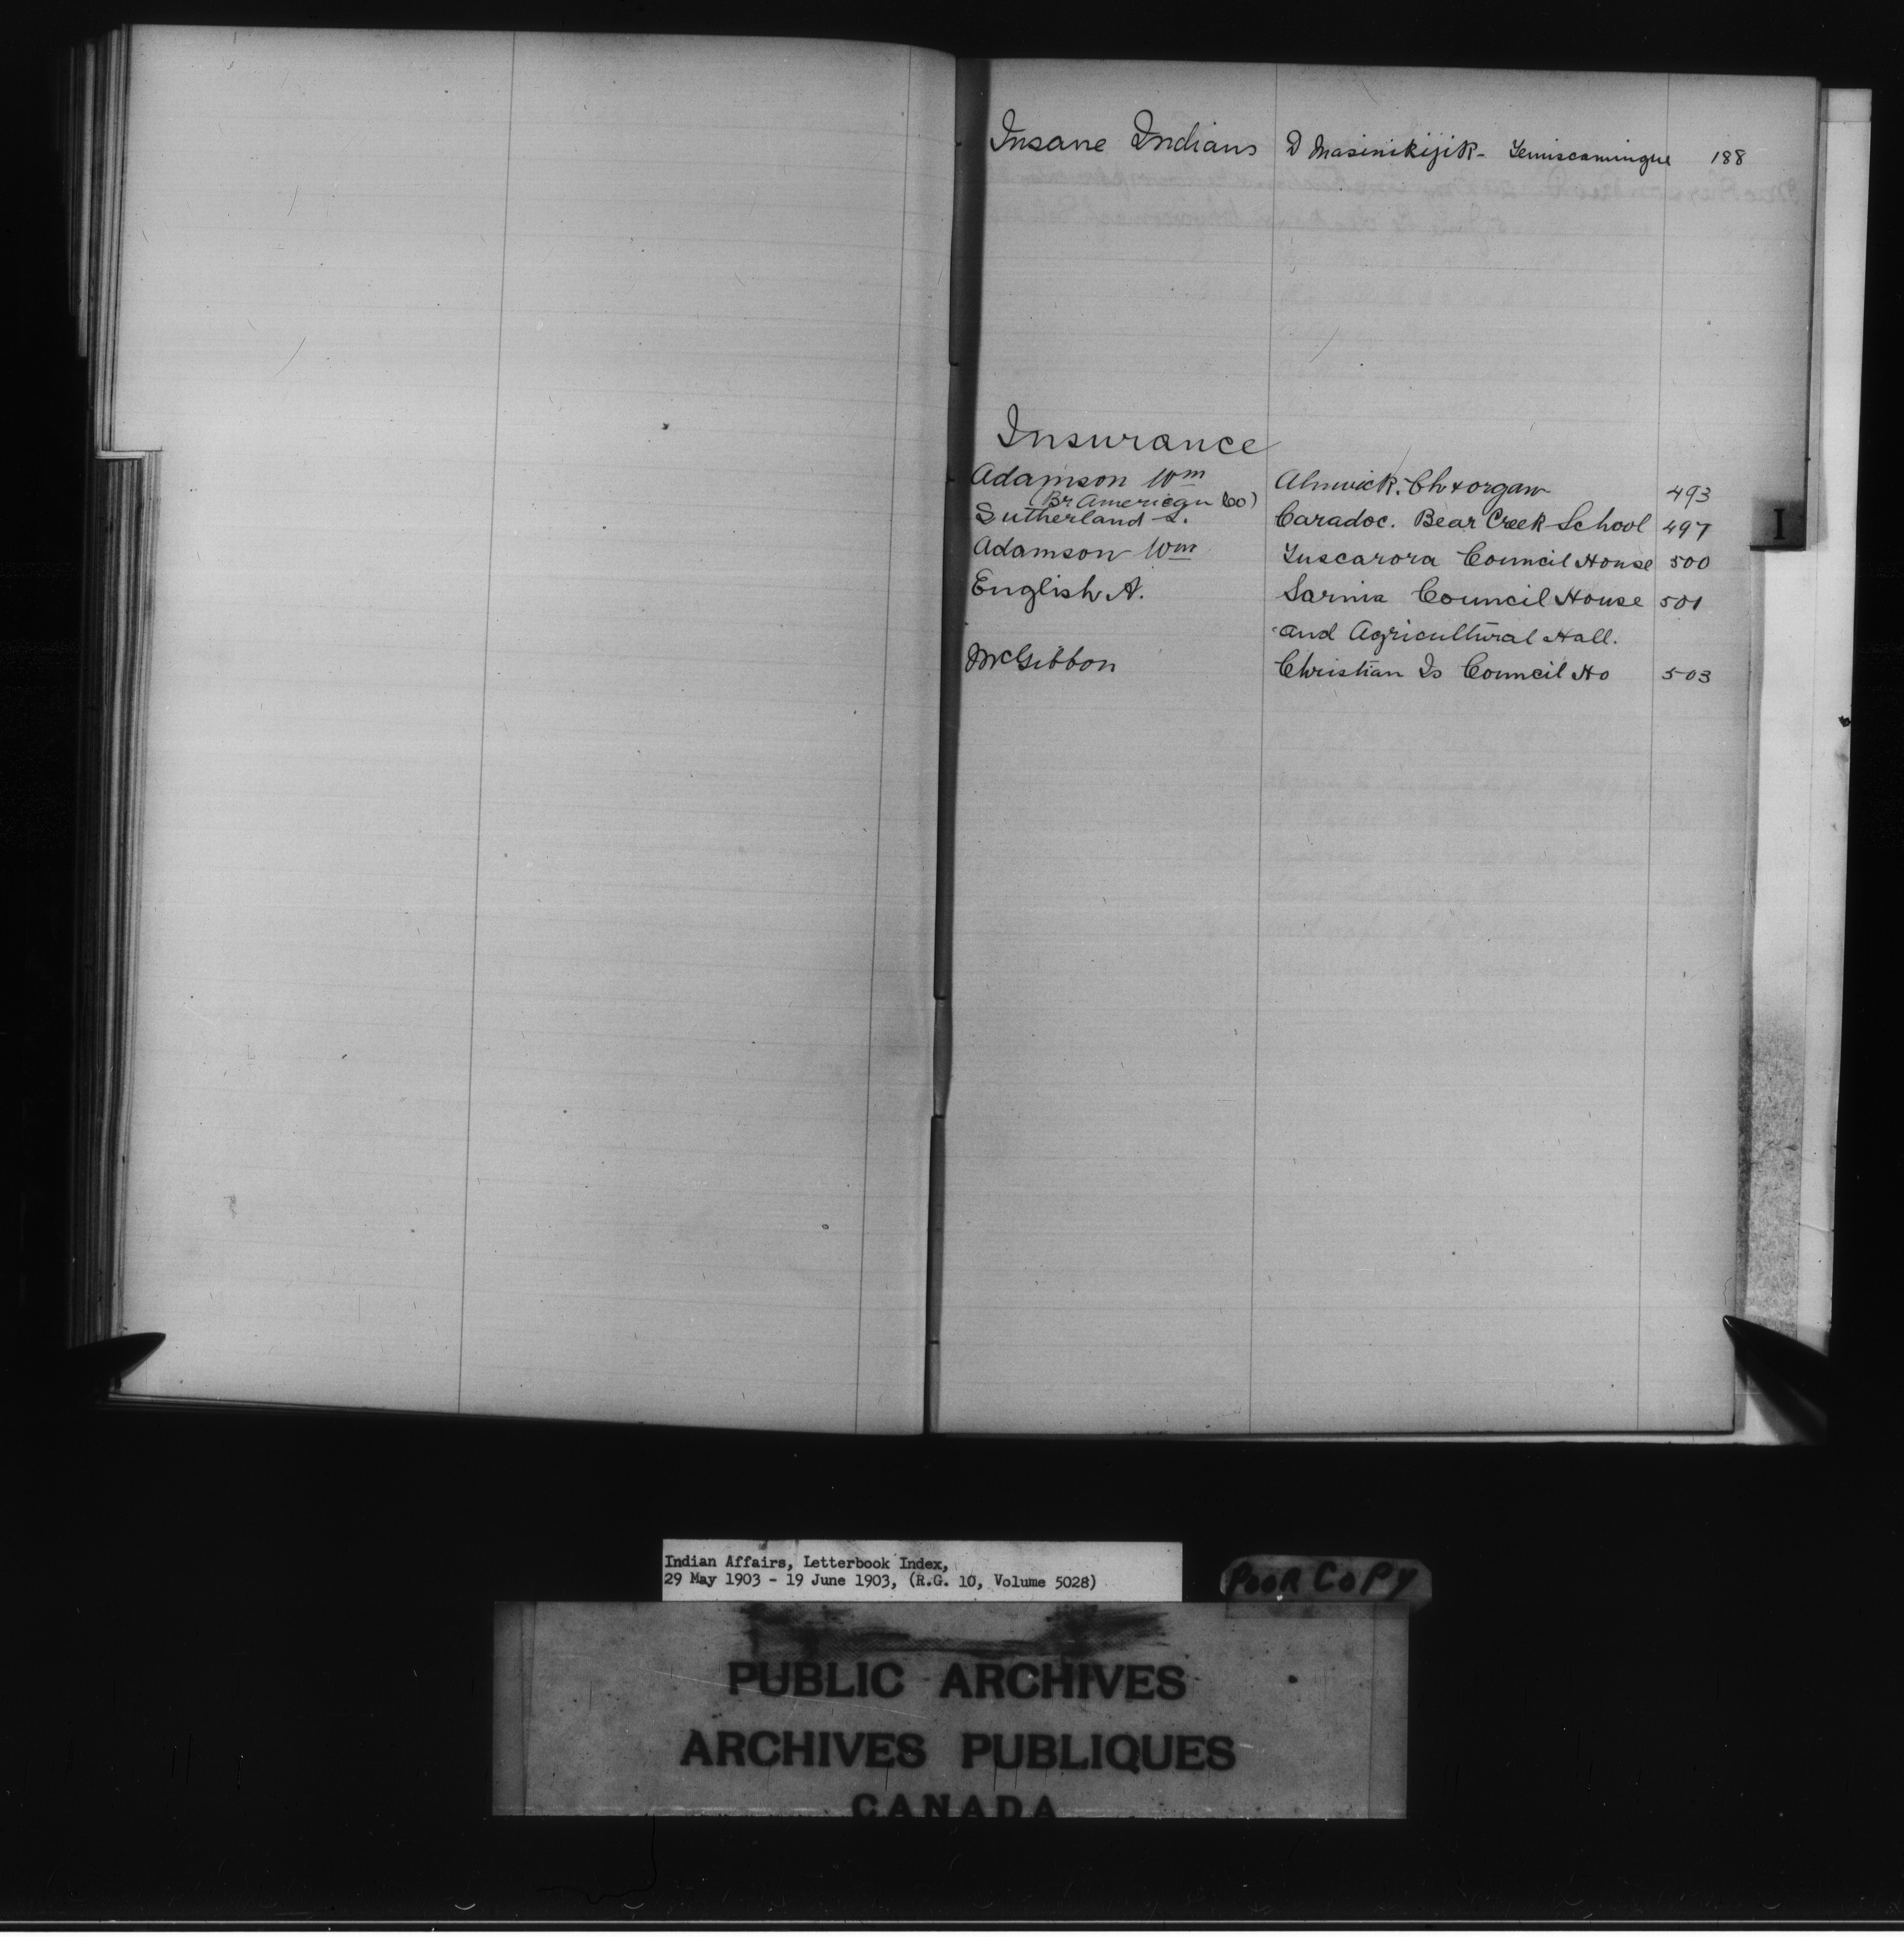 Insane Indians D Masinikijik - Temiscamingue 188
Insurance
Adamson Wm Alnwick. Ch & organ 493
(Br American Co)
Sutherland S. Caradoc. Bear Creek School 497
Adamson Wm Tuscarora Council House 500
English A. Sarnia Council House 501
and Agricultural Hall.
McGibbon Christian Is Council Ho 503
I
Indian Affairs, Letterbook Index,
29 May 1903 - 19 June 1903, (R.G. 10, Volume 5028)
POOR COPY
PUBLIC ARCHIVES
ARCHIVES PUBLIQUES
CANADA